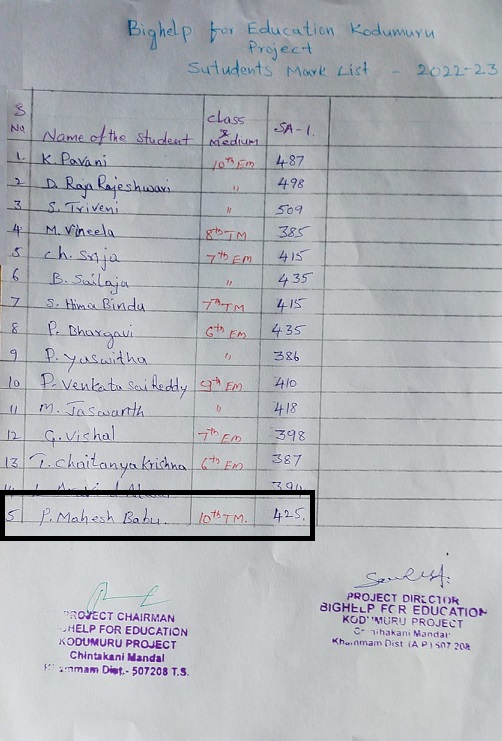 Bighelp for Education Kodumuru
Project
Sutudents Mark List - 2022-23
S No Name of the Student Class & Medium SA-1.
1. K Pavani 10th EM 487
2 D. Raja Rajeshwari " 498
3 S. Triveni " 509
4 M. Vineela 8th TM 385
5 Ch. Srija 7th EM 415
6 B. Sailaja " 435
7 S. Hima Bindu 7th TM 415
8 P. Bhargavi 6th EM 435
9 P. Yaswitha " 386
10 P. Venkata Sai Reddy 9th EM 410
11 M. Jaswanth " 418
12 G. Vishal 7th EM 398
13 T. Chaitanya Krishna 6th EM 387
14
5 P. Mahesh Babu. 10th TM. 425.
PROJECT CHAIRMAN
HELP FOR EDUCATION
KODUMURU PROJECT
Chintakani Mandal
Dist.- 507208 T.S.
PROJECT DIRECTOR
BIGHELP FOR EDUCATION
KODUMURU PROJECT
Mandal
Khammam Dist (A P) 507 208